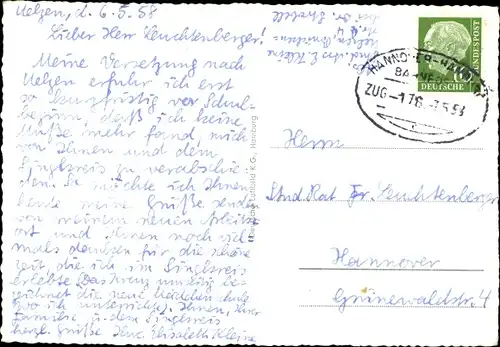 Uelzen, d. 6.5.58
Lieber Herr Leuchtenberger!
Meine Versetzung nach
Uelzen erfuhr ich erst
so kurzfristig vor Schul-
beginn, daß ich keine
Muße mehr fand, mich
von Ihnen und dem
Singkreis zu verabschie-
den. So möchte ich Ihnen
heute meine Grüße senden
von meinem neuen Arbeits-
ort und Ihnen noch viel-
mals danken für die schöne
Zeit die ich im Singkreis
erlebte. Das Kreuz unseitig be-
zeichnet die neue Mädchenschule
wo ich unterrichte. Ihnen, Ihrer
Familie u. dem Singkreis
herzl. Grüße Ihre Elisabeth Kleine
Abs. E. Kleine
Uelzen
bei Dr.
DEUTSCHE
BUNDESPOST
10
HANNOVER-
BAHNPOST
ZUG
-7.5.58
Hamburg
Herrn
Stud. Rat Fr. Leuchtenberger
Hannover
Grünewaldstr. 4